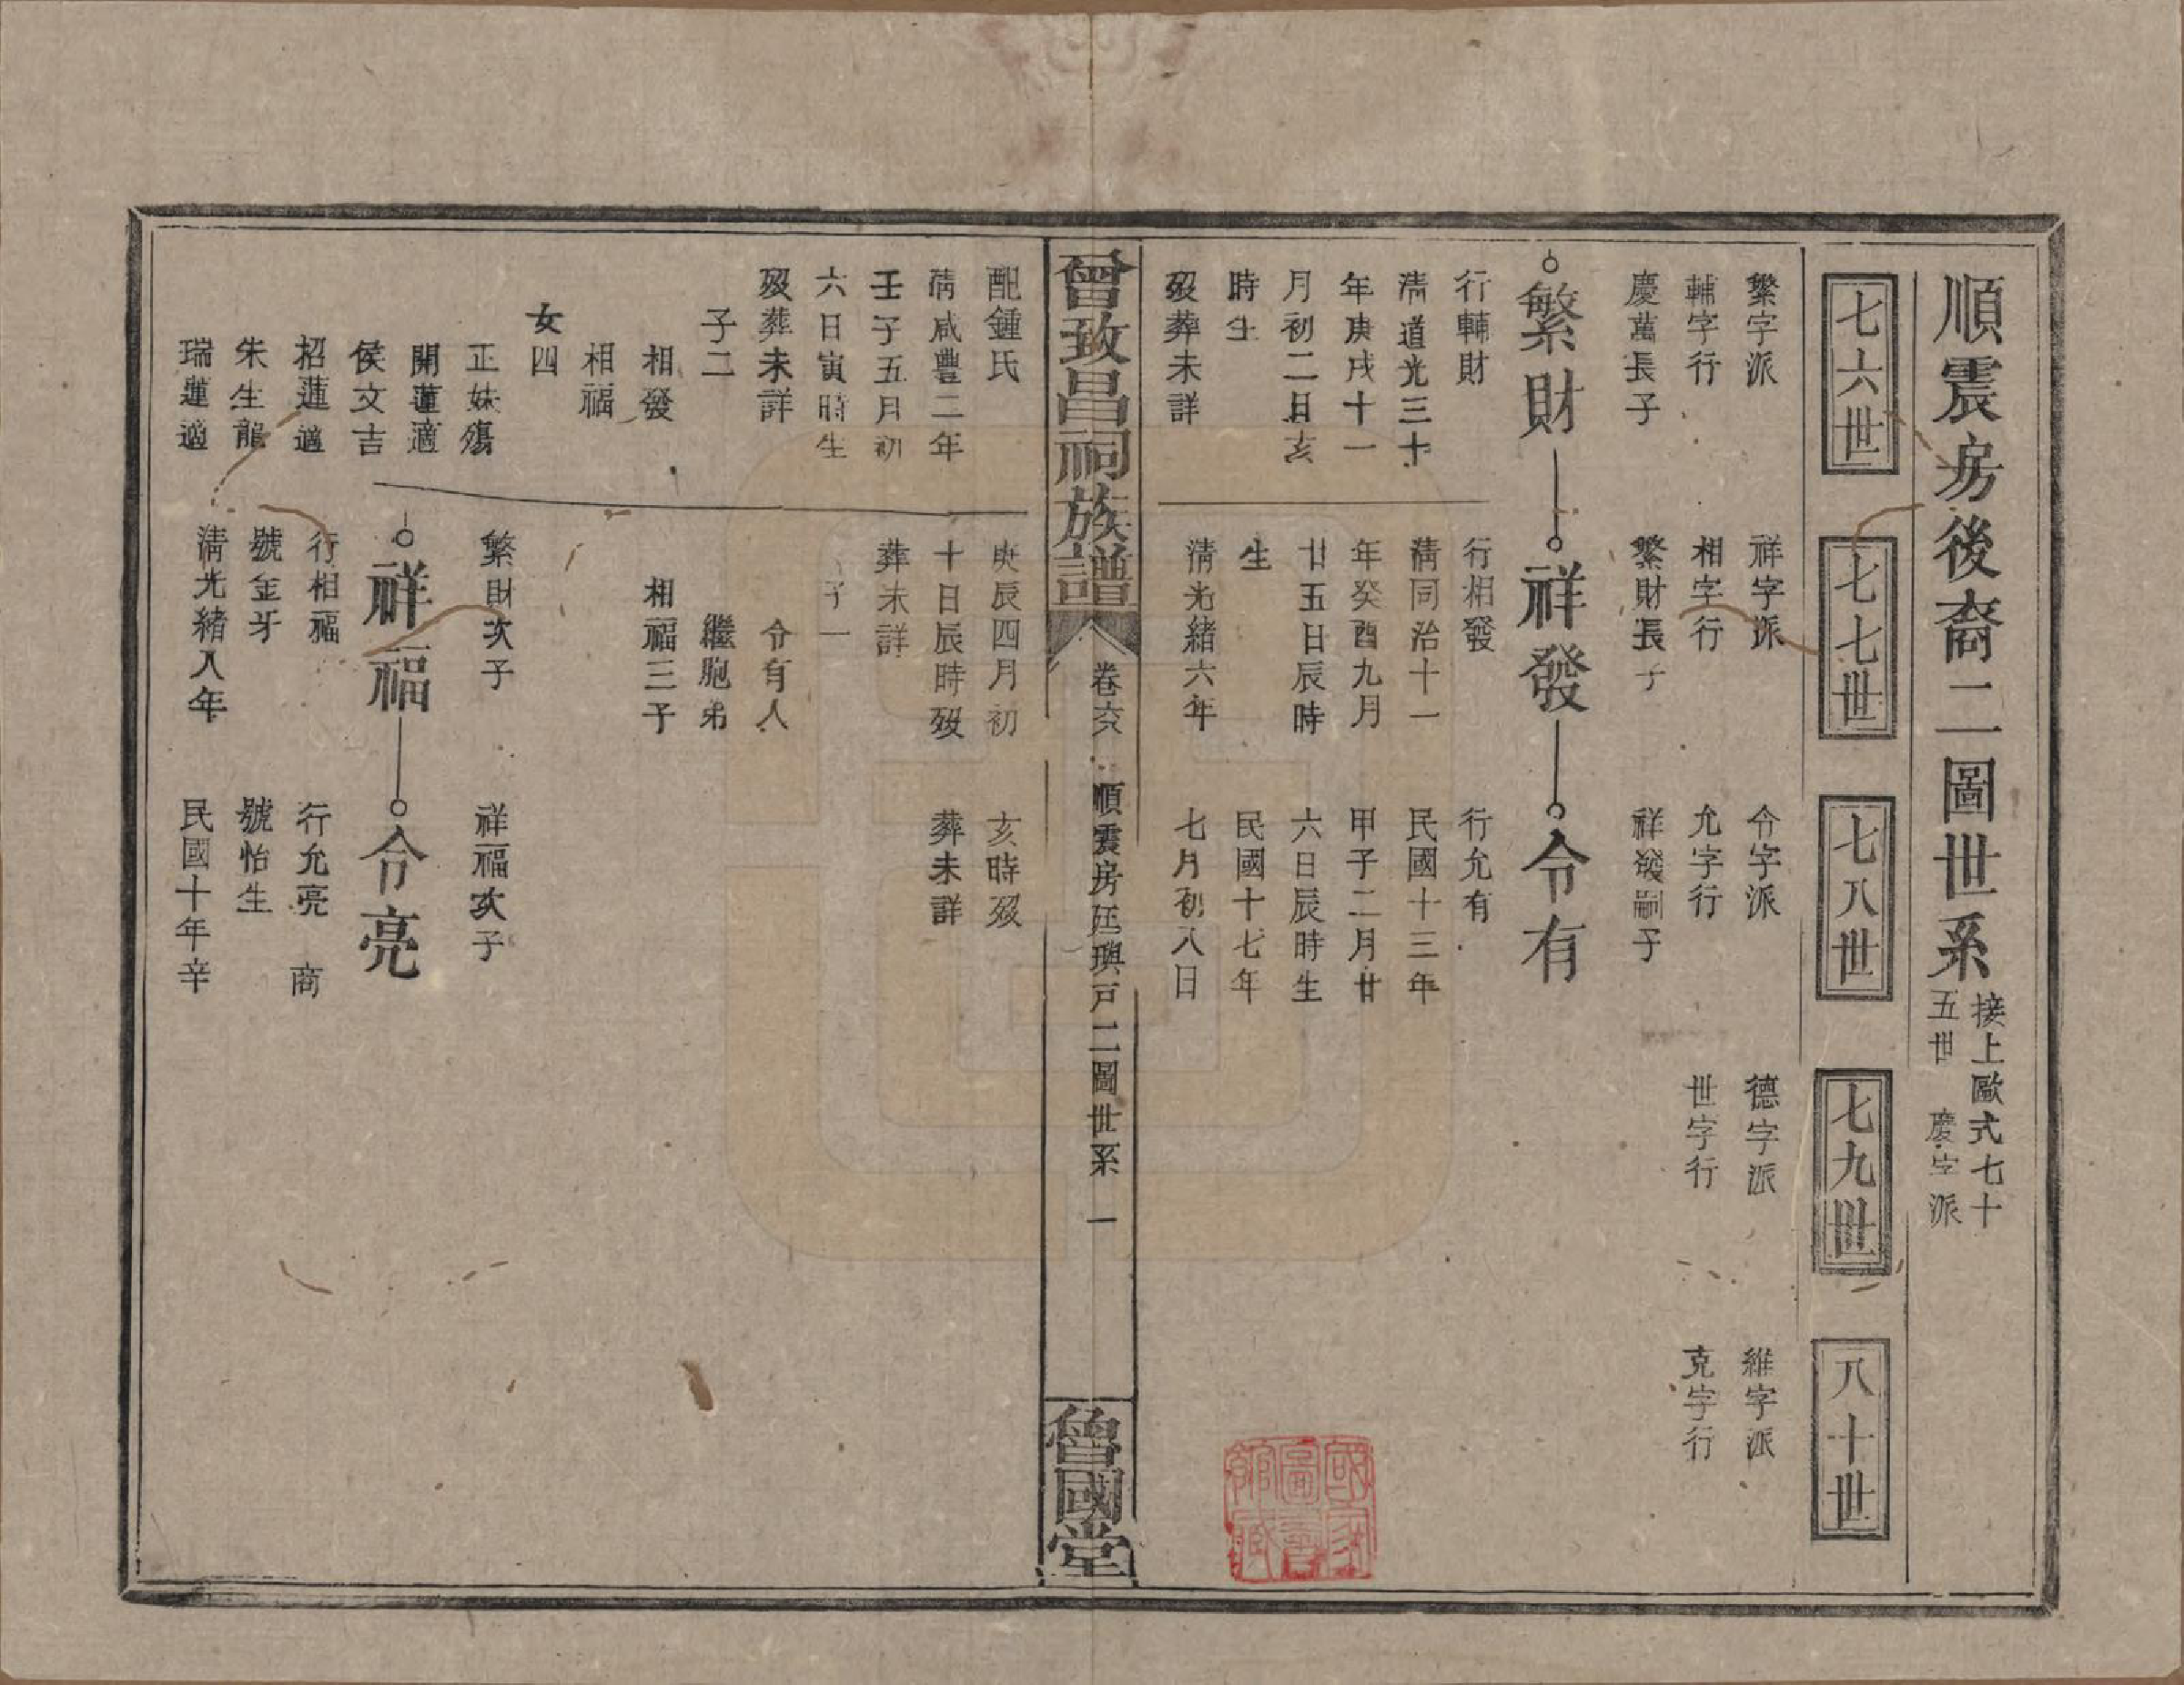 順震房後裔二圖世系
接上歐式七十
五世 慶字派
七六世
七七世
七八世
七九世
八十世
繁字派
輔字行
慶萬長子
祥字派
相字行
繁財長子
令字派
允字行
祥發嗣子
德字派
世字行
維字派
克字行
繁財
祥發
令有
行輔財
清道光三十
年庚戌十一
月初二日亥
時生
歿葬未詳
行相發
清同治十一
年癸酉九月
廿五日辰時
生
清光緒六年
行允有
民國十三年
甲子二月廿
六日辰時生
民國十七年
七月初八日
曾致昌祠族譜
卷六
順震房廷璵戸二圖世系 一
魯國堂
配鍾氏
清咸豐二年
壬子五月初
六日寅時生
歿葬未詳
子二
相發
相福
女四
正妹殤
開蓮適
侯文吉
招蓮適
朱生龍
瑞蓮適
庚辰四月初
十日辰時歿
葬未詳
子一
令有人
繼胞弟
相福三子
亥時歿
葬未詳
繁財次子
祥福次子
祥福
令亮
行相福
號金牙
清光緒八年
行允亮 商
號怡生
民國十年辛
國家
圖書
館藏